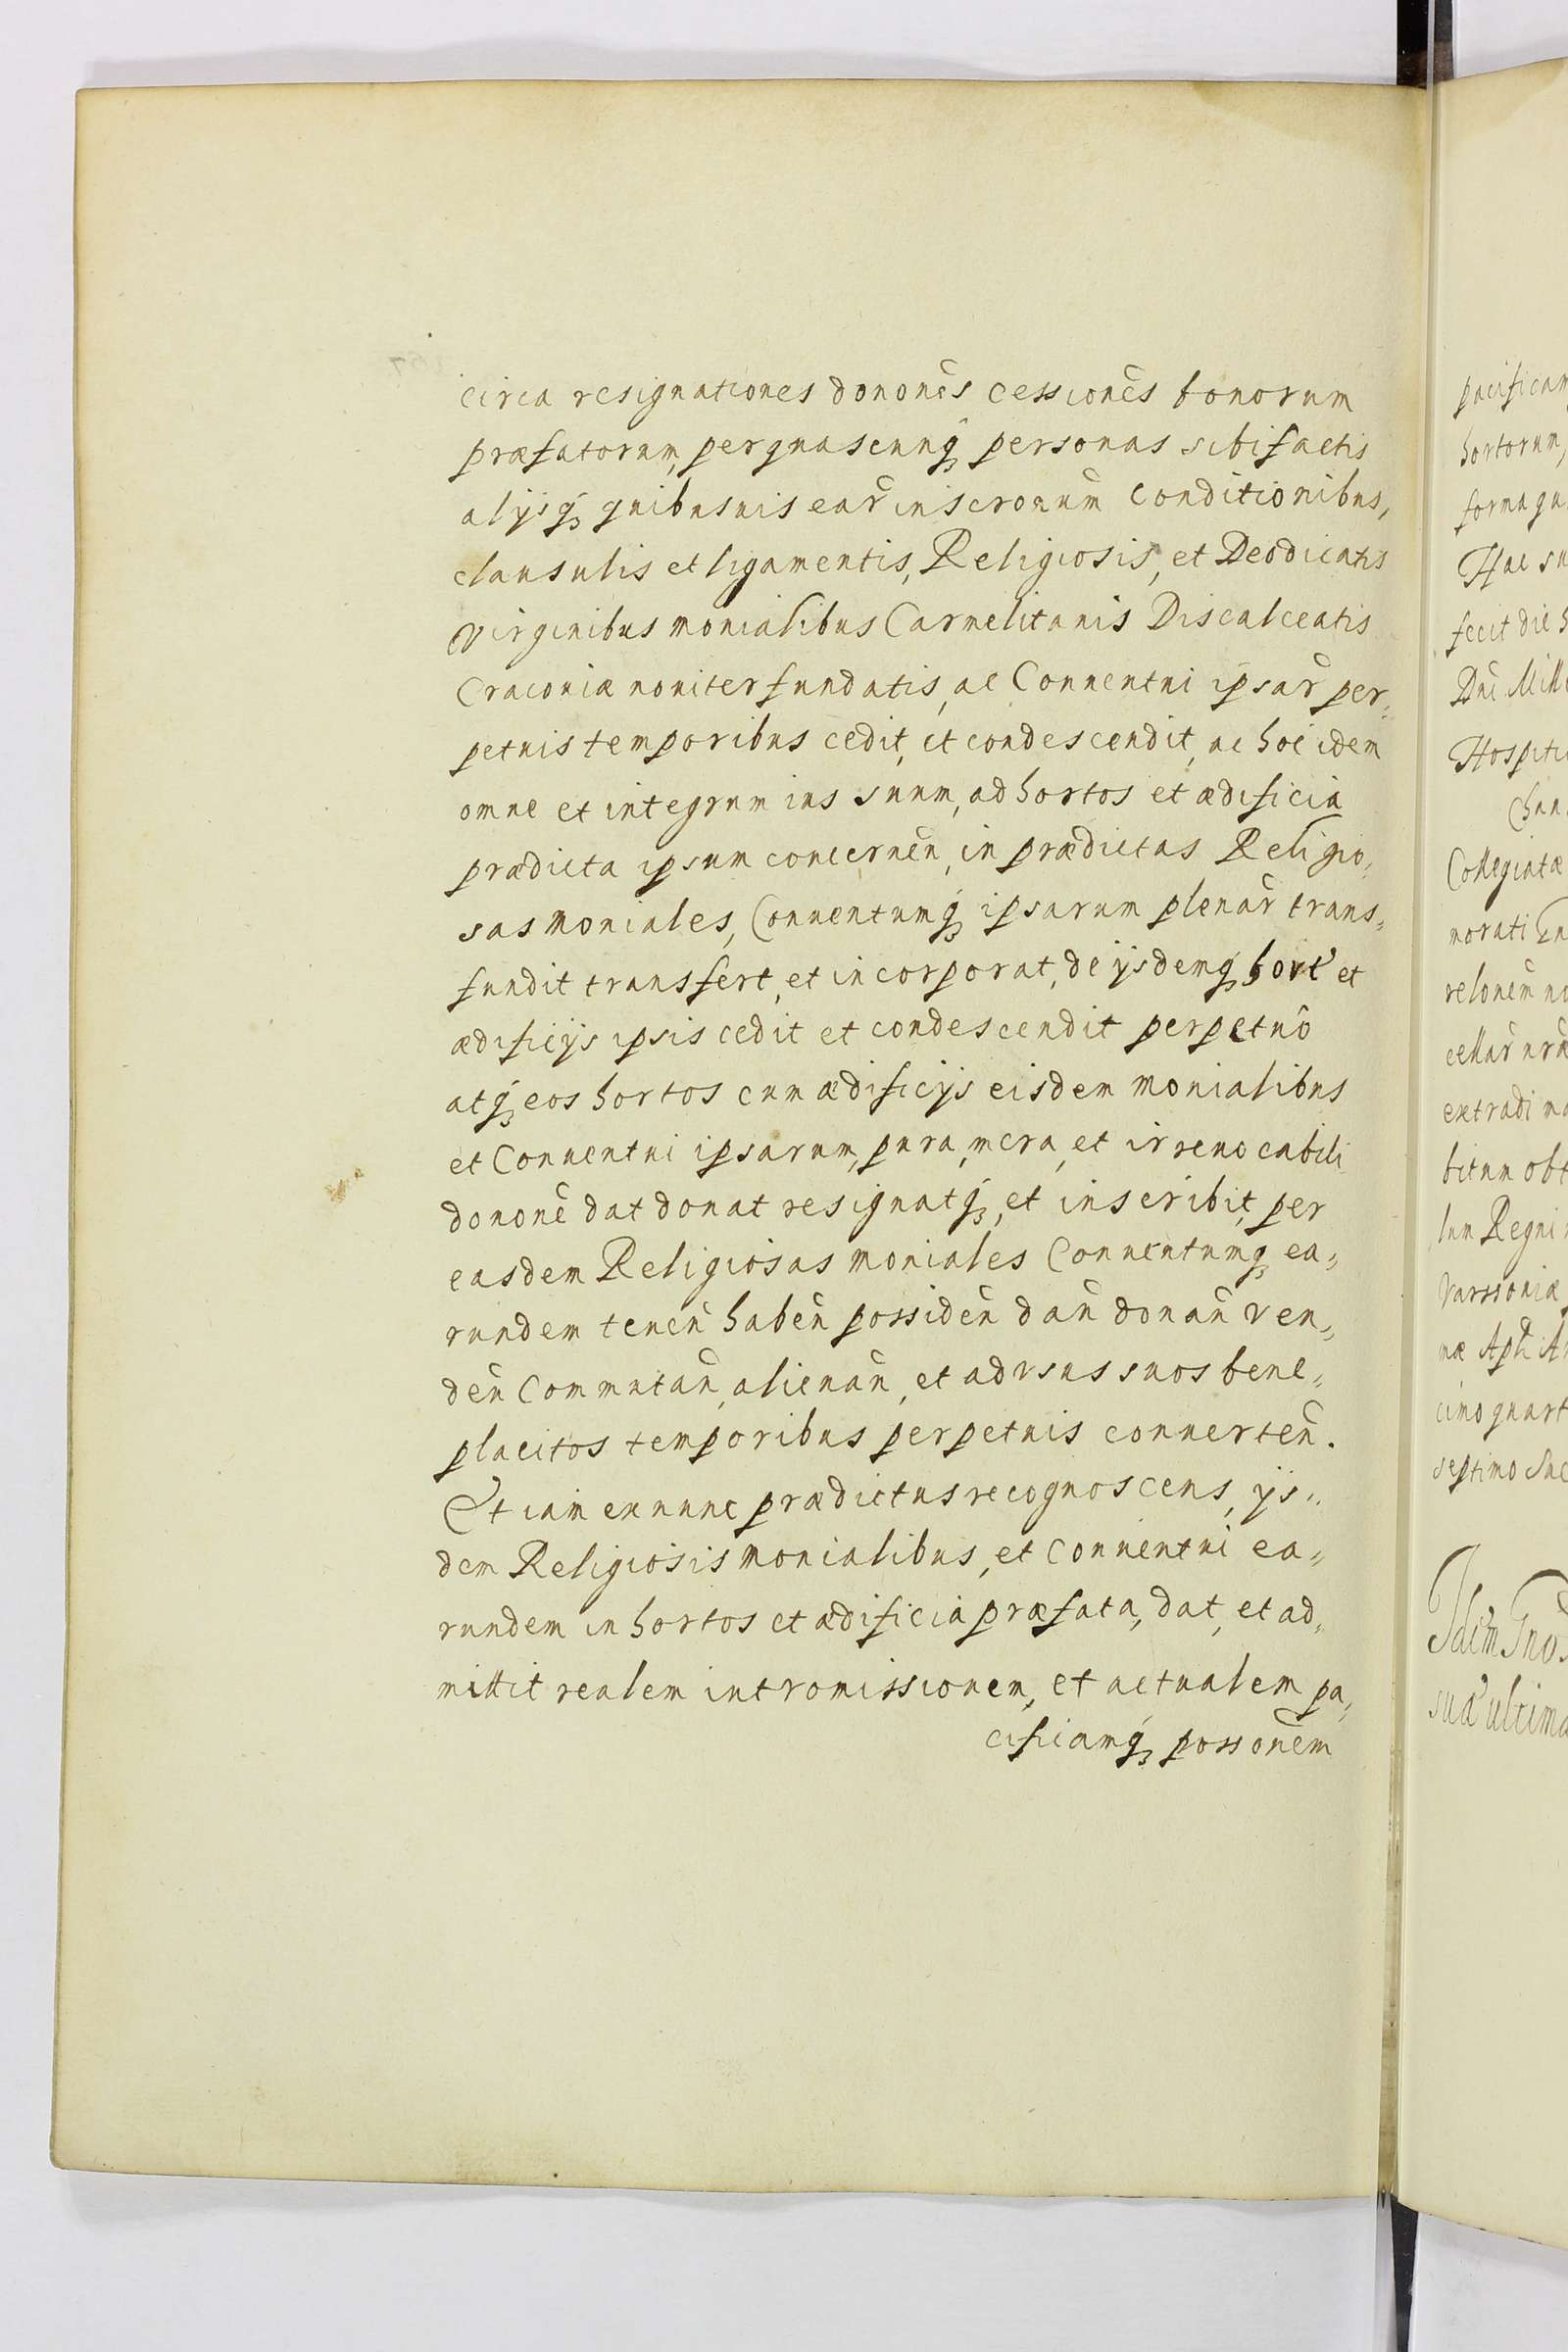 circa resignationes dononẽs cessionẽs bonorum
præfatorum, per quascunq̃ personas sibi factis
alijsq̃ quibusuis ear̃ inscronum̃ conditionibus,
clausulis et ligamentis, Religiosis, et Deodicatis
Virginibus monialibus Carmelitanis Discalceatis
Cracouiæ nouiter fundatis, ac Conuentui ipsar̃ per,,
petuis temporibus cedit, et condescendit, ac hoc idem
omne et integrum ius suum, ad hortos et ædificia
prædicta ipsum concerneñ, in prædictas Religio,,
sas moniales, Conuentumq̃ ipsarum plenar̃ trans,,
fundit transfert, et incorporat, de ijsdemq̃ hort' et
ædificijs ipsis cedit et condescendit perpetuò
atq̃ eos hortos cum ædificijs eisdem monialibus
et Conuentui ipsarum, pura, mera, et irreuocabili
dononẽ dat donat resignatq̃, et inscribit, per
easdem Religiosas moniales Conuentumq̃ ea,,
rundem teneñ habeñ possideñ dañ donañ ven,,
deñ Commutañ, alienañ, et ad vsus suos bene,,
placitos temporibus perpetuis conuerteñ.
Et iam ex nunc prædictus recognoscens, ijs,,
dem Religiosis monialibus, et Conuentui ea,,
rundem in hortos et ædificia præfata, dat, et ad,,
mittit realem intromissionem, et actualem pa,,
cificamq̃ possonẽm
pacificam
hortorum,
forma qu
Hac su
fecit die h
Dnĩ Mill
Hospiti
Chan
Collegiatæ
norati
relonem̃ no
cellar̃ nrã
extradi ma
bitum obt
lum Regni
Varssouiæ
næ
cimo quart
septimo
Idem
sua ultima